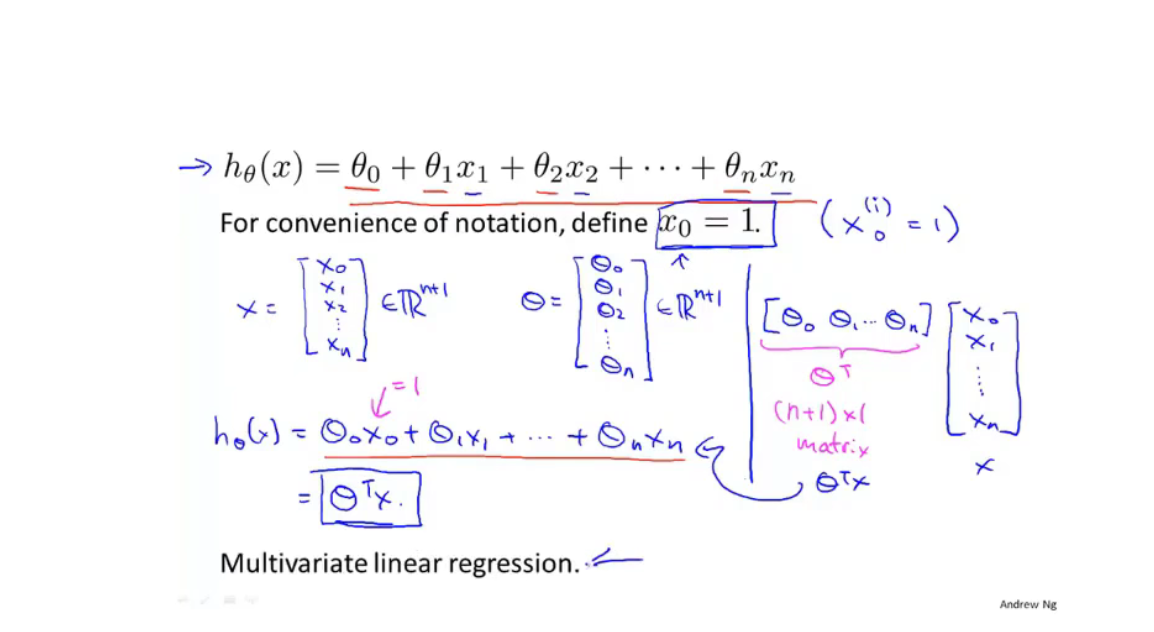 → hθ(x) = θ0 + θ1x1 + θ2x2 + ⋯ + θnxn
For convenience of notation, define x0 = 1. (x0^(i) = 1)
x = [x0 x1 x2 ⋮ xn] ∈ ℝ^(n+1) θ = [θ0 θ1 θ2 ⋮ θn] ∈ ℝ^(n+1)
[θ0 θ1 ⋯ θn] [x0 x1 ⋮ xn]
θ^T
(n+1)×1
matrix
θ^T x x
= 1
hθ(x) = θ0x0 + θ1x1 + ⋯ + θnxn
= θ^T x.
Multivariate linear regression. ←
Andrew Ng